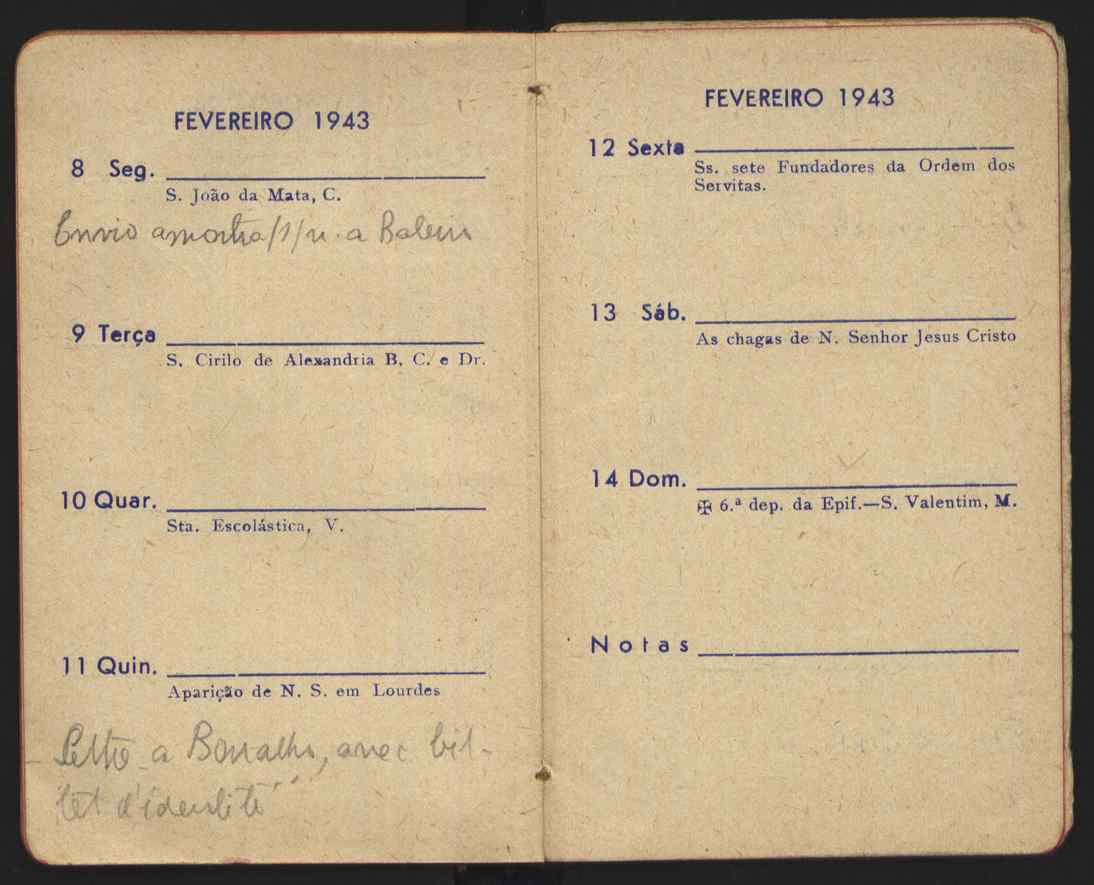 FEVEREIRO 1943
8 Seg.
S. João da Mata, C.
Envio amostra/1/n. a
9 Terça
S. Cirilo de Alexandria B. C. e Dr.
10 Quar.
Sta. Escolástica, V.
11 Quin.
Aparição de N. S. em Lourdes
Lettre a Borralho, avec bil-
let d'identité
FEVEREIRO 1943
12 Sexta
Ss. sete Fundadores da Ordem dos
Servitas.
13 Sáb.
As chagas de N. Senhor Jesus Cristo
14 Dom.
✠ 6.ª dep. da Epif.—S. Valentim, M.
Notas